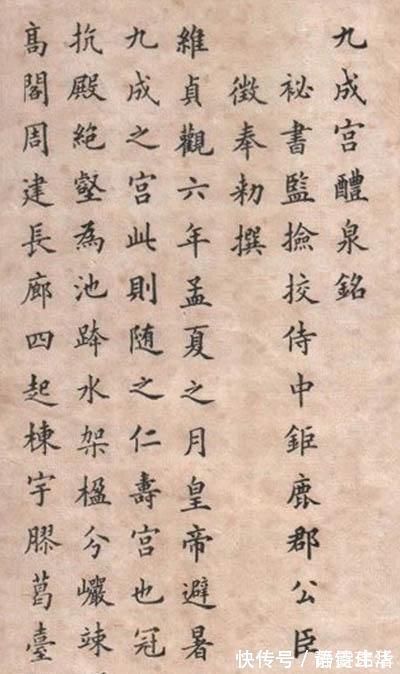 九成宫醴泉銘
祕書監撿挍侍中鉅鹿郡公臣
徵奉勑撰
維貞觀六年孟夏之月皇帝避暑
九成之宫此則随之仁壽宫也冠
抗殿絕壑為池跨水架楹分巖竦
髙閣周建長廊四起棟宇膠葛臺
快传号/